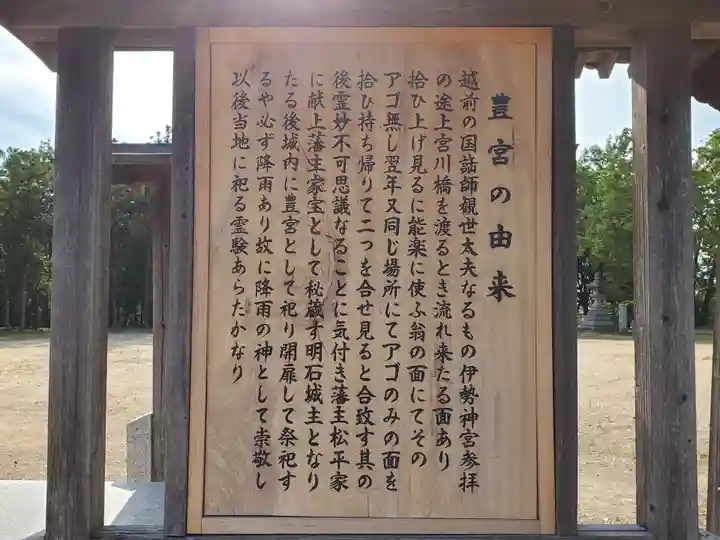 豊宮の由来
越前の国謡師観世太夫なるもの伊勢神宮参拝
の途上宮川橋を渡るとき流れ来たる面あり
拾ひ上げ見るに能楽に使ふ翁の面にてその
アゴ無し翌年又同じ場所にてアゴのみの面を
拾ひ持ち帰りて二つを合せ見ると合致す其の
後霊妙不可思議なることに気付き藩主松平家
に献上藩主家宝として秘蔵す明石城主となり
たる後城内に豊宮として祀り開扉して祭祀す
るや必ず降雨あり故に降雨の神として崇敬し
以後当地に祀る霊験あらたかなり